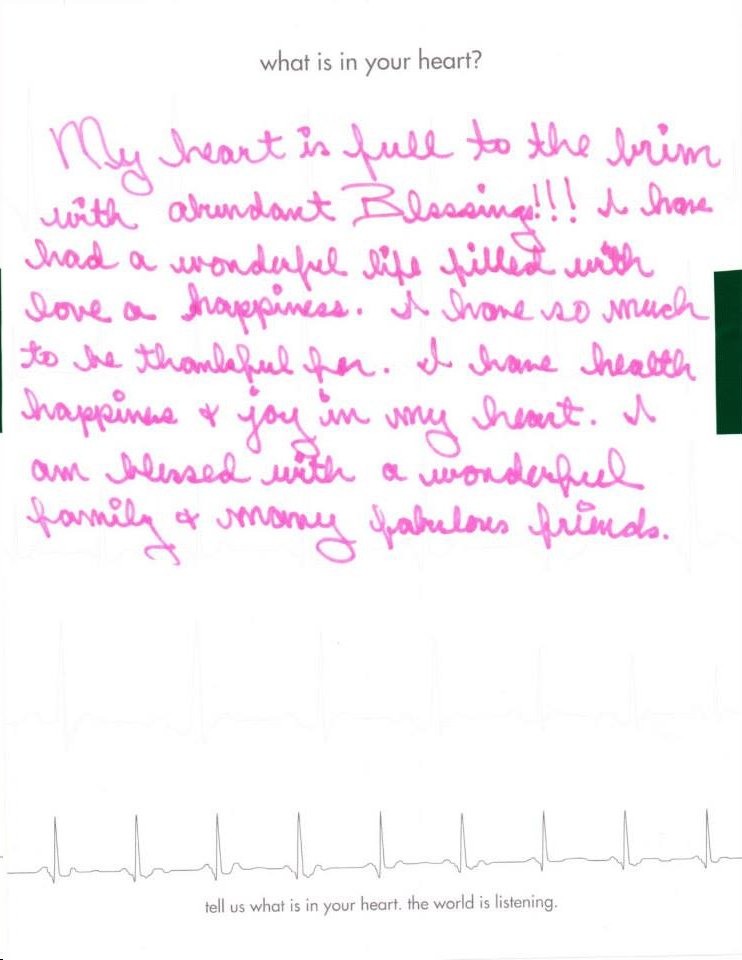 what is in your heart?
My heart is full to the brim
with abundant Blessings!!! I have
had a wonderful life filled with
love a happiness. I have so much
to be thankful for. I have health
happiness & joy in my heart. I
am blessed with a wonderful
family & many fabulous friends.
tell us what is in your heart. the world is listening.